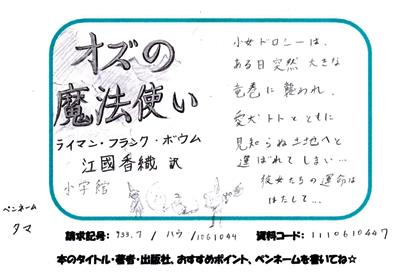 オズの
魔法使い
ライマン・フランク・ボウム
江國香織 訳
小学館
少女ドロシーは、
ある日突然 大きな
竜巻に 襲われ、
愛犬トトとともに
見知らぬ土地へと
運ばれてしまい…
彼女たちの運命は
はたして…
ペンネーム
タマ
請求記号: 933.7 / ハウ / 1061044 資料コード: 1110610447
本のタイトル・著者・出版社、おすすめポイント、ペンネームを書いてね☆